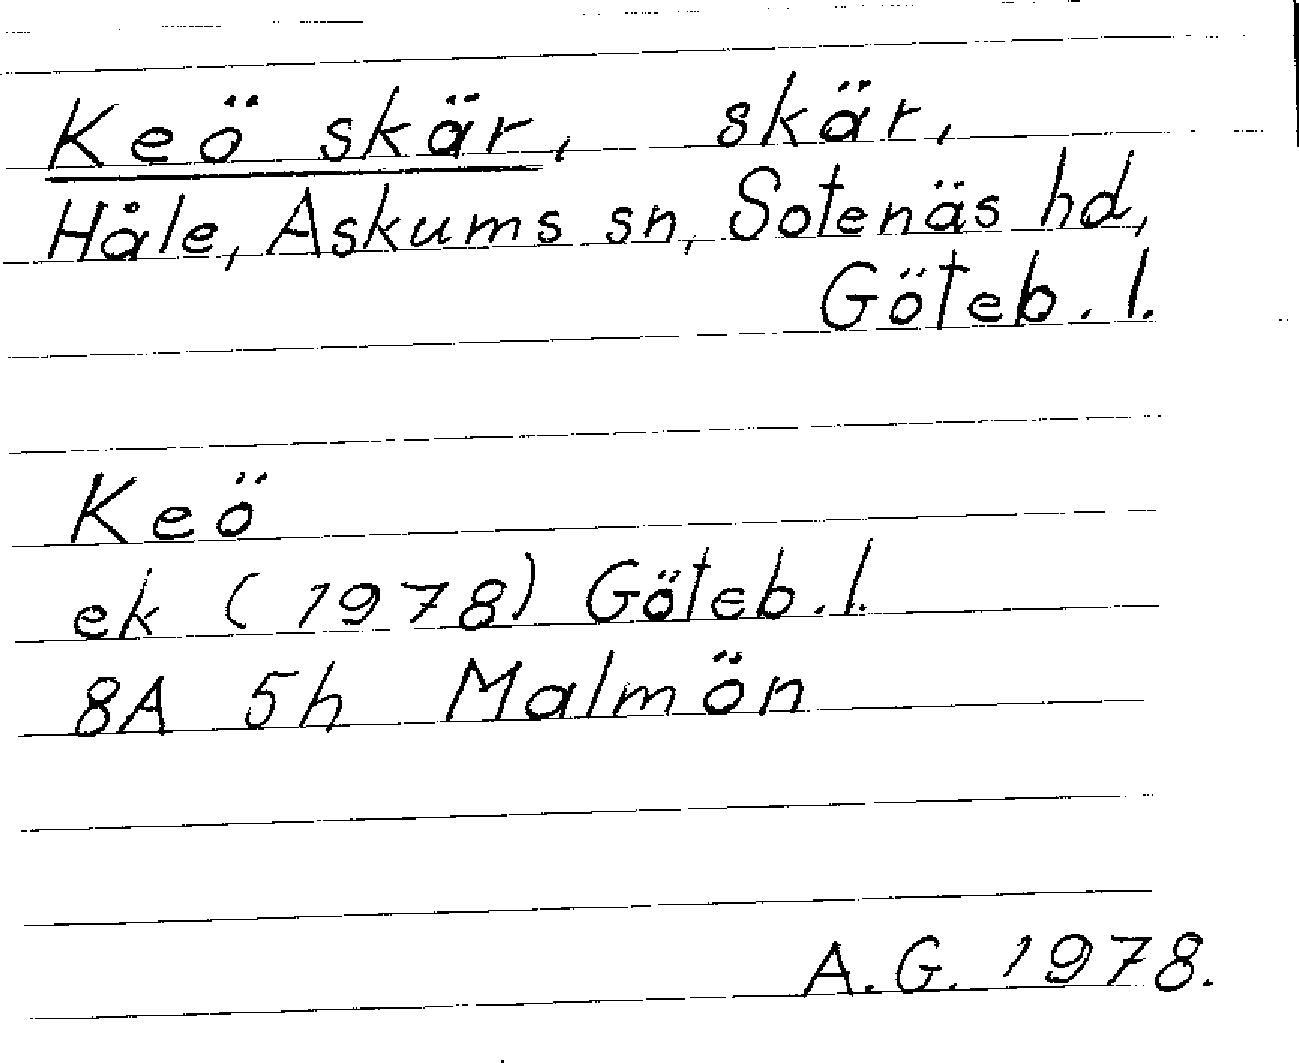 Keö skär, skär,
Håle, Askums sn, Sotenäs hd,
Göteb. l.
Keö
ek (1978) Göteb. l.
8A 5h Malmön
A. G. 1978.